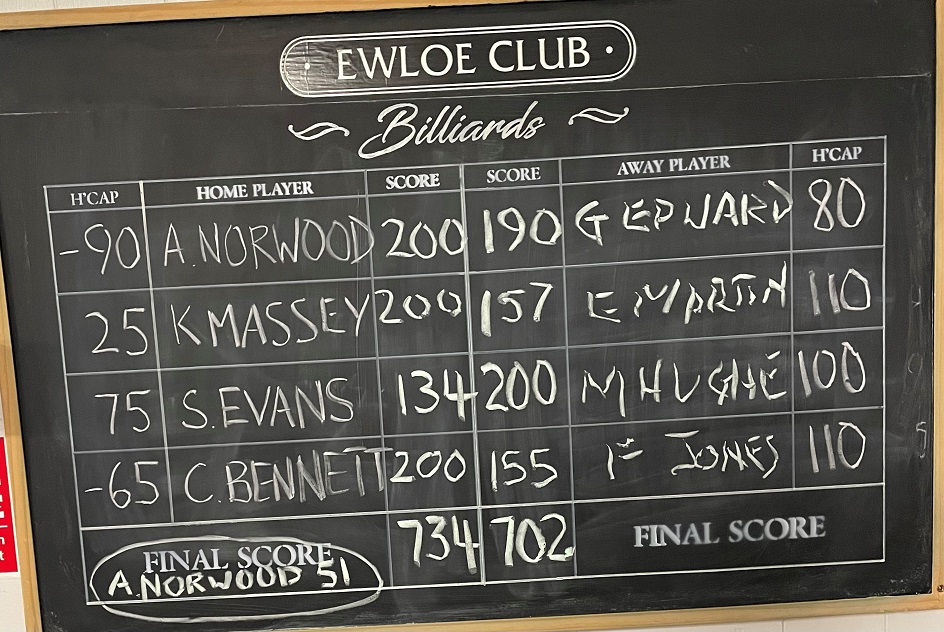 EWLOE CLUB
Billiards
H'CAP HOME PLAYER SCORE SCORE AWAY PLAYER H'CAP
-90 A. NORWOOD 200 190 G EDWARD 80
25 K MASSEY 200 157 E MARTIN 110
75 S. EVANS 134 200 M HUGHE 100
-65 C. BENNETT 200 155 F JONES 110
FINAL SCORE 734 702 FINAL SCORE
A. NORWOOD 51